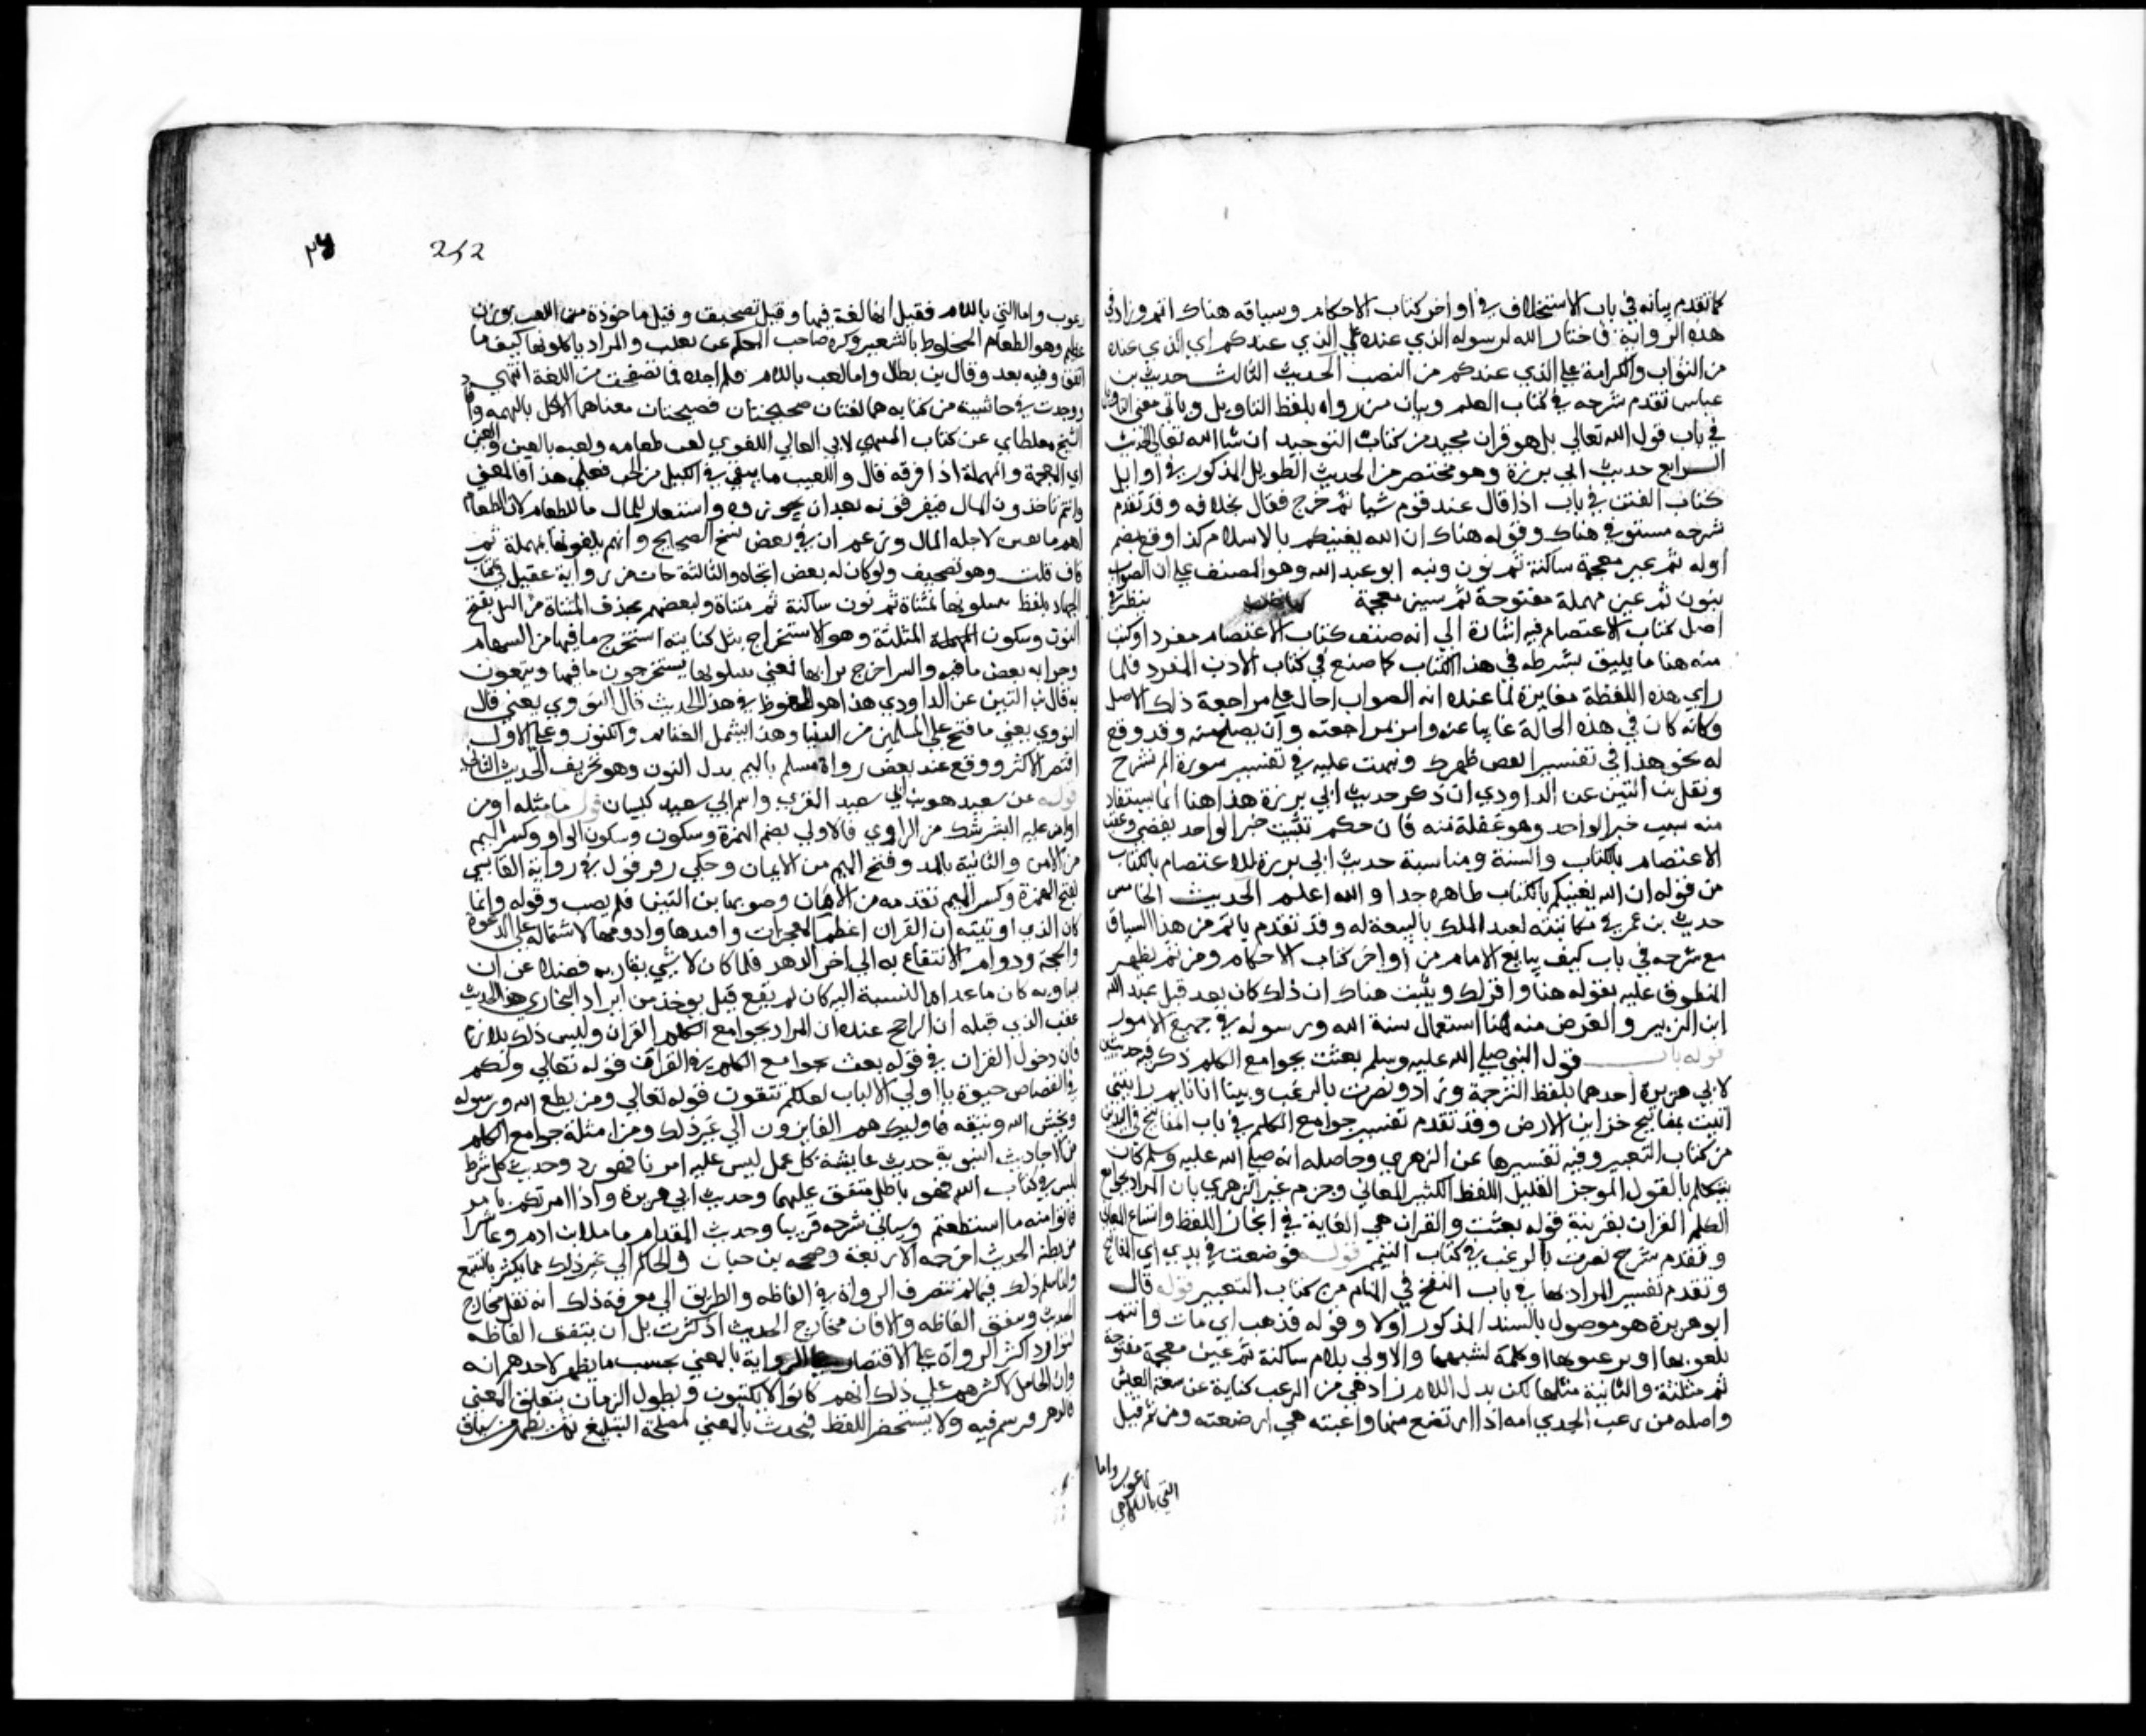 كما تقدم بيانه في باب الاستخلاف في أواخر كتاب الاحكام وسياقه هناك اتم وزاد في
هذه الرواية فاختار الله لرسوله الذي عنده على الذي عندكم اي الذي عنده
من الثواب والكرامة على الذي عندكم من النصب الحديث الثالث حديث بن
عباس تقدم شرحه في كتاب العلم وبيان من رواه بلفظ التاويل وياتي معنى التاويل
في باب قول الله تعالى بل هو قران مجيد من كتاب التوحيد ان شا الله تعالى الحديث
الرابع حديث ابي برزة وهو مختصر من الحديث الطويل المذكور في اوايل
كتاب الفتن في باب اذا قال عند قوم شيا ثم خرج فقال بخلافه وقد تقدم
شرحه مستوفي هناك وقوله هناك ان الله يغنيكم بالاسلام كذا وقع بضم
أوله ثم غير معجمة ساكنة ثم نون ونبه ابو عبد الله وهو المصنف على ان الصواب
بنون ثم عين مهملة مفتوحة ثم شين معجمة ينظر في
اصل كتاب الاعتصام فيه اشارة الي انه صنف كتاب الاعتصام مفردا وكتب
منه هنا ما يليق بشرطه في هذا الكتاب كما صنع في كتاب الادب المفرد فلما
راي هذه اللفظة مغايرة لما عنده انه الصواب احال على مراجعة ذلك الاصل
وكانه كان في هذه الحالة غايبا عنه وامر بمراجعته وان يصلح منه وقد وقع
له نحو هذا في تفسير انقض ظهرك ونبهت عليه في تفسير سورة الم نشرح
ونقل بن التين عن الداودي ان ذكر حديث ابي برزة هذا هنا انما يستفاد
منه تثبيت خبر الواحد وهو غفلة منه فان حكم تثبيت خبر الواحد يقضي وعقب
الاعتصام بالكتاب والسنة ومناسبة حديث ابي برزة للاعتصام بالكتاب
من قوله ان الله يغنيكم بالكتاب ظاهره جدا والله اعلم الحديث الخامس
حديث بن عمر في مكاتبته لعبد الملك بالبيعة له وقد تقدم باتم من هذا السياق
مع شرحه في باب كيف يبايع الامام من أواخر كتاب الاحكام ومن ثم يظهر
المعطوف عليه بقوله هنا واقر لك وبينت هناك ان ذلك كان بعد قتل عبد الله
ابن الزبير والغرض منه هنا استعمال سنة الله ورسوله في جميع الامور
قوله باب قول النبي صلى الله عليه وسلم بعثت بجوامع الكلم ذكر فيه حديثين
لابي هريرة احدهما بلفظ الترجمة وزاد ونصرت بالرعب وبينا انا نايم رايتني
اتيت بمفاتيح خزاين الارض وقد تقدم تفسير جوامع الكلم في باب المفاتيح في اليد
من كتاب التعبير وفيه تفسيرها عن الزهري وحاصله انه صلى الله عليه وسلم كان
يتكلم بالقول الموجز القليل اللفظ الكثير المعاني وجزم غير الزهري بان المراد بجوامع
الكلم القران بقرينة قوله بعثت والقران هي الغاية في ايجاز اللفظ واتساع المعاني
وتقدم شرح نصرت بالرعب في كتاب التيمم قوله فوضعت في يدي اي المفاتيح
وتقدم تفسير المراد بها في باب النفخ في المنام من كتاب التعبير قوله قال
ابو هريرة هو موصول بالسند المذكور أولا وقوله فذهب اي مات وانتم
تلغوبها او ترغبوها او كلمة تشبهها والاولى بلام ساكنة ثم غين معجمة مفتوحة
ثم مثلثة والثانية مثلها لكن بدل اللام را وهي من الرغب كناية عن سعة العيش
واصله من رغب الجدي امه اذا ارتضع منها وارغبته هي ارضعته ومن ثم قيل
رغوث واما
التي باللام
252
رغوب واما التي باللام فقيل انها لغة فيها وقيل تصحيف وقيل ماخوذة من اللغيب بوزن
عظيم وهو الطعام المخلوط بالشعير وذكره صاحب المحكم عن ثعلب والمراد ياكلونها كيف ما
اتفق وفيه بعد وقال بن بطال واما لغب باللام فلم اجده فيما تصفحت من اللغة انتهى
ووجدت في حاشية من كتابه هما لغتان صحيحتان فصيحتان معناهما الاكل بالنهمة وافاد
الشيخ مغلطاي عن كتاب المنتهى لابي المعالي اللغوي لغب طعامه ولعبه بالغين والعين
اي المعجمة والمهملة اذا فرقه قال واللغيب ما يبقى في الكيل من الحب فعلى هذا فالمعنى
وانتم تاخذون المال فتفرقونه بعد ان تحوزوه واستعار للمال ما للطعام لان الطعام
اهم ما يقتنى لاجله المال وزعم ان في بعض نسخ الصحيح وانتم تلعقونها بمهملة ثم
قاف قلت وهو تصحيف ولو كان له بعض اتجاه والثالثة جات من رواية عقيل في كتاب
الجهاد بلفظ تنتثلونها بمثناة ثم نون ساكنة ثم مثناة ولبعضهم بحذف المثناة من النثل بفتح
النون وسكون المثلثة وهو الاستخراج نثل كنانته استخرج ما فيها من السهام
وجرابه نفض ما فيه والبير اخرج ترابها فمعنى تنتثلونها تستخرجون ما فيها وتتمتعون
به قال بن التين عن الداودي هذا هو المحفوظ في هذا الحديث قال النووي يعني قال
النووي يعني ما فتح على المسلمين من الدنيا وهذا يشمل الغنايم والكنوز وعلى الاول
اقتصر الاكثر ووقع عند بعض رواة مسلم بالميم بدل النون وهو تحريف الحديث الثاني
قوله عن سعيد هو بن ابي سعيد المقبري واسم ابي سعيد كيسان قوله ما مثله اومن
او امن عليه البشر شك من الراوي فالاولى بضم الهمزة وسكون وسكون الواو وكسر الميم
من الامن والثانية بالمد وفتح الميم من الايمان وحكى بن قرقول في رواية القابسي
بفتح الهمزة وكسر الميم بغير مد من الامان وصوبها بن التين فلم يصب وقوله وانما
كان الذي اوتيته ان القران اعظم المعجزات وافيدها وادومها لاشتماله على الدعوة
والحجة ودوام الانتفاع به الي اخر الدهر فلما كان لا شي يقاربه فضلا عن ان
يساويه كان ما عداه بالنسبة اليه كان لم يقع قيل يوخذ من ايراد البخاري هذا الحديث
عقب الذي قبله ان الراجح عنده ان المراد بجوامع الكلم القران وليس ذلك بلازم
فان دخول القران في قوله بعثت بجوامع الكلم في القران قوله تعالي ولكم
في القصاص حيوة يا اولي الالباب لعلكم تتقون قوله تعالي ومن يطع الله ورسوله
ويخش الله ويتقه فاوليك هم الفايزون الي غير ذلك ومن امثلة جوامع الكلم
من الاحاديث النبوية حديث عايشة كل عمل ليس عليه امرنا فهو رد وحديث كل شرط
ليس في كتاب الله فهو باطل متفق عليهما وحديث ابي هريرة واذا امرتكم بامر
فاتوا منه ما استطعتم وسياتي شرحه قريبا وحديث المقدام ما ملا ابن ادم وعا شرا
من بطنه الحديث اخرجه الاربعة وصححه بن حبان والحاكم الي غير ذلك مما يكثر بالتتبع
وانما يسلم ذلك فيما لم تتصرف الرواة في الفاظه والطريق الي معرفة ذلك ان تقل مخارج
الحديث وتتفق الفاظه والا فان مخارج الحديث اذا كثرت قل ان تتفق الفاظه
لتوارد اكثر الرواة على الاقتصار على الرواية بالمعنى بحسب ما يظهر لاحدهم انه
وان الحامل لاكثرهم على ذلك انهم كانوا لا يكتبون ويطول الزمان بتعلق المعنى
فالذهن ويرسم فيه ولا يستحضر اللفظ فيحدث بالمعنى لمصلحة التبليغ ثم يظهر من سياق